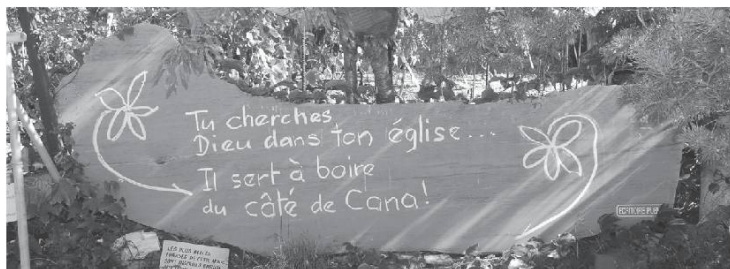 Tu cherches
Dieu dans ton église...
Il sert à boire
du côté de Cana!